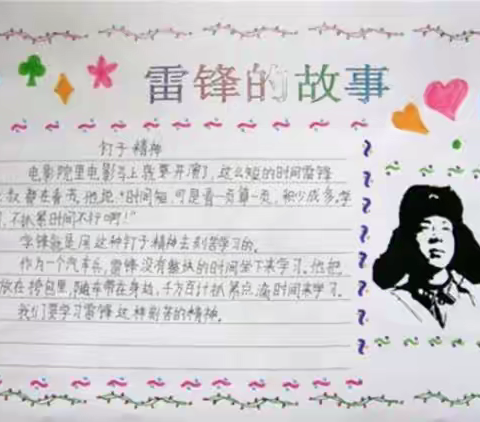 雷锋的故事
钉子精神
电影院里电影马上就要开演了,这么短的时间雷锋
叔都在看书,他说:"时间短,可是看一页算一页,积少成多。学
,不抓紧时间不行啊!"
雷锋就是用这种钉子精神去刻苦学习的。
作为一个汽车兵,雷锋没有整块的时间坐下来学习。他把
放在挎包里,随车带在身边,千方百计抓紧点滴时间来学习。
我们要学习雷锋这种刻苦的精神。